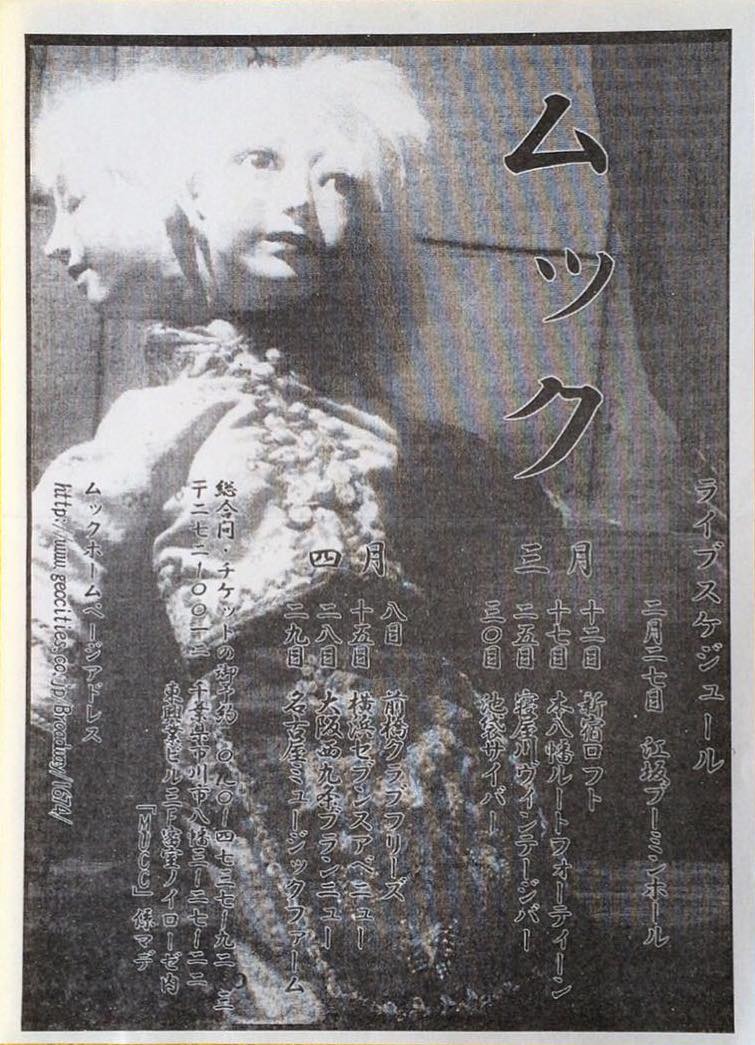 ムック
ライブスケジュール
二月二七日 江坂ブーミンホール
三月
十二日 新宿ロフト
十七日 本八幡ルートフォーティーン
二五日 寝屋川ヴィンテージバー
三〇日 池袋サイバー
四月
八日 前橋クラブフリーズ
十五日 横浜セブンスアベニュー
二八日 大阪西九条ブランニュー
二九日 名古屋ミュージックファーム
総合問・チケットの御予約 〇九〇-四七三七-九二
〒二七二-〇〇二 千葉県市川市八幡三-二七-二二
東興業ビル三F密室ノイローゼ内
『MUCC』係マデ
ムックホームページアドレス
http://www.geocities.co.jp/Broadway/1674/